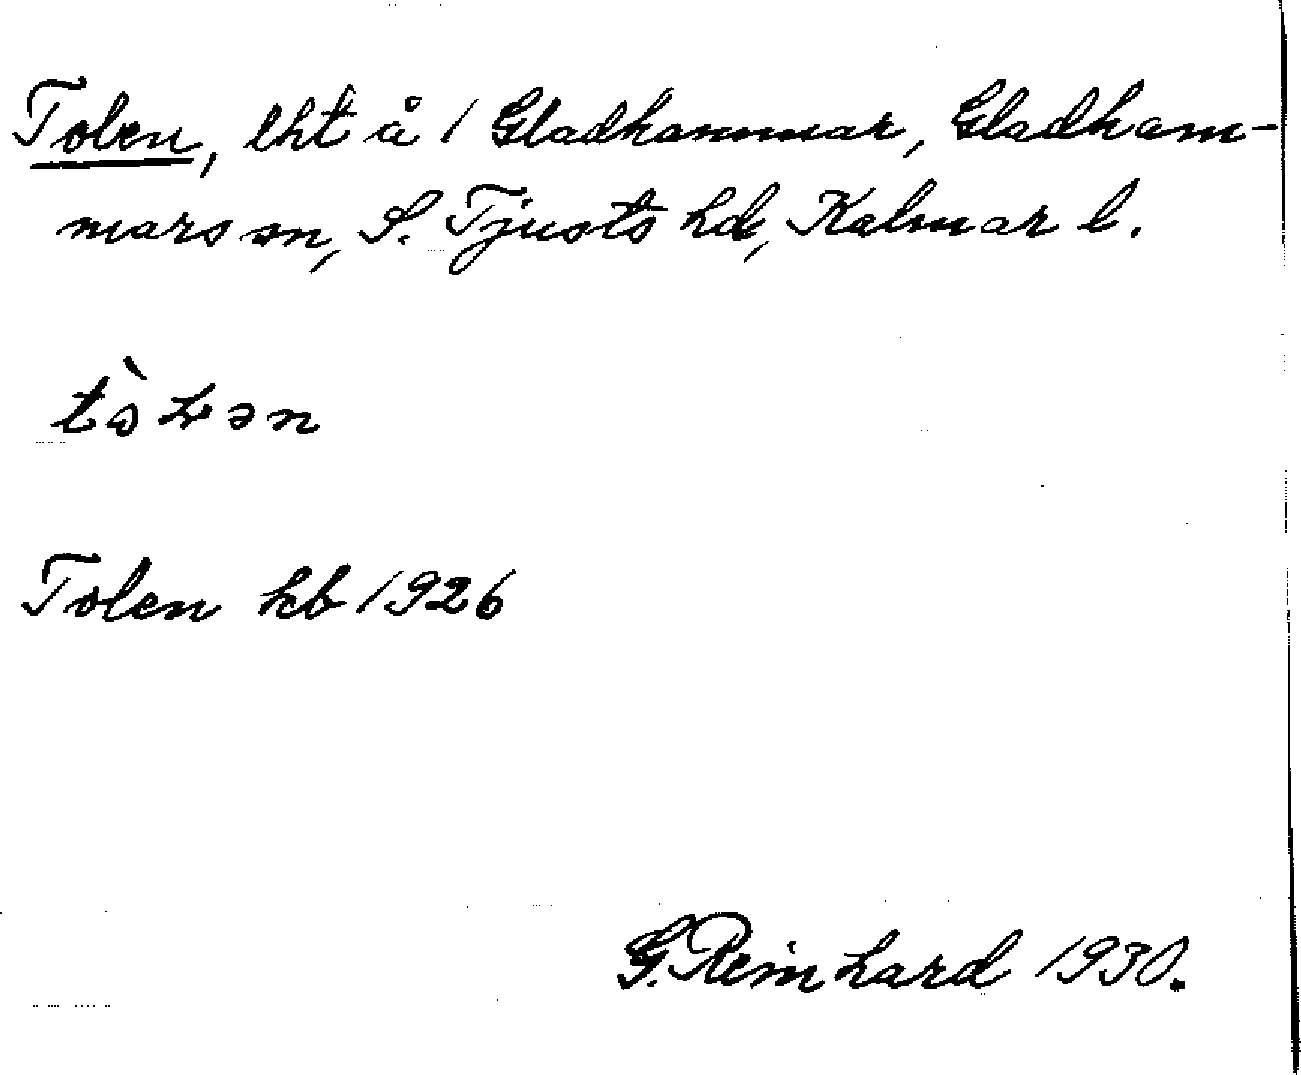 Tolen, lht å 1 Gladhammar, Gladham-
mars sn, S. Tjusts hd, Kalmar l.
Tolen kb 1926
G. Reinhard 1930.